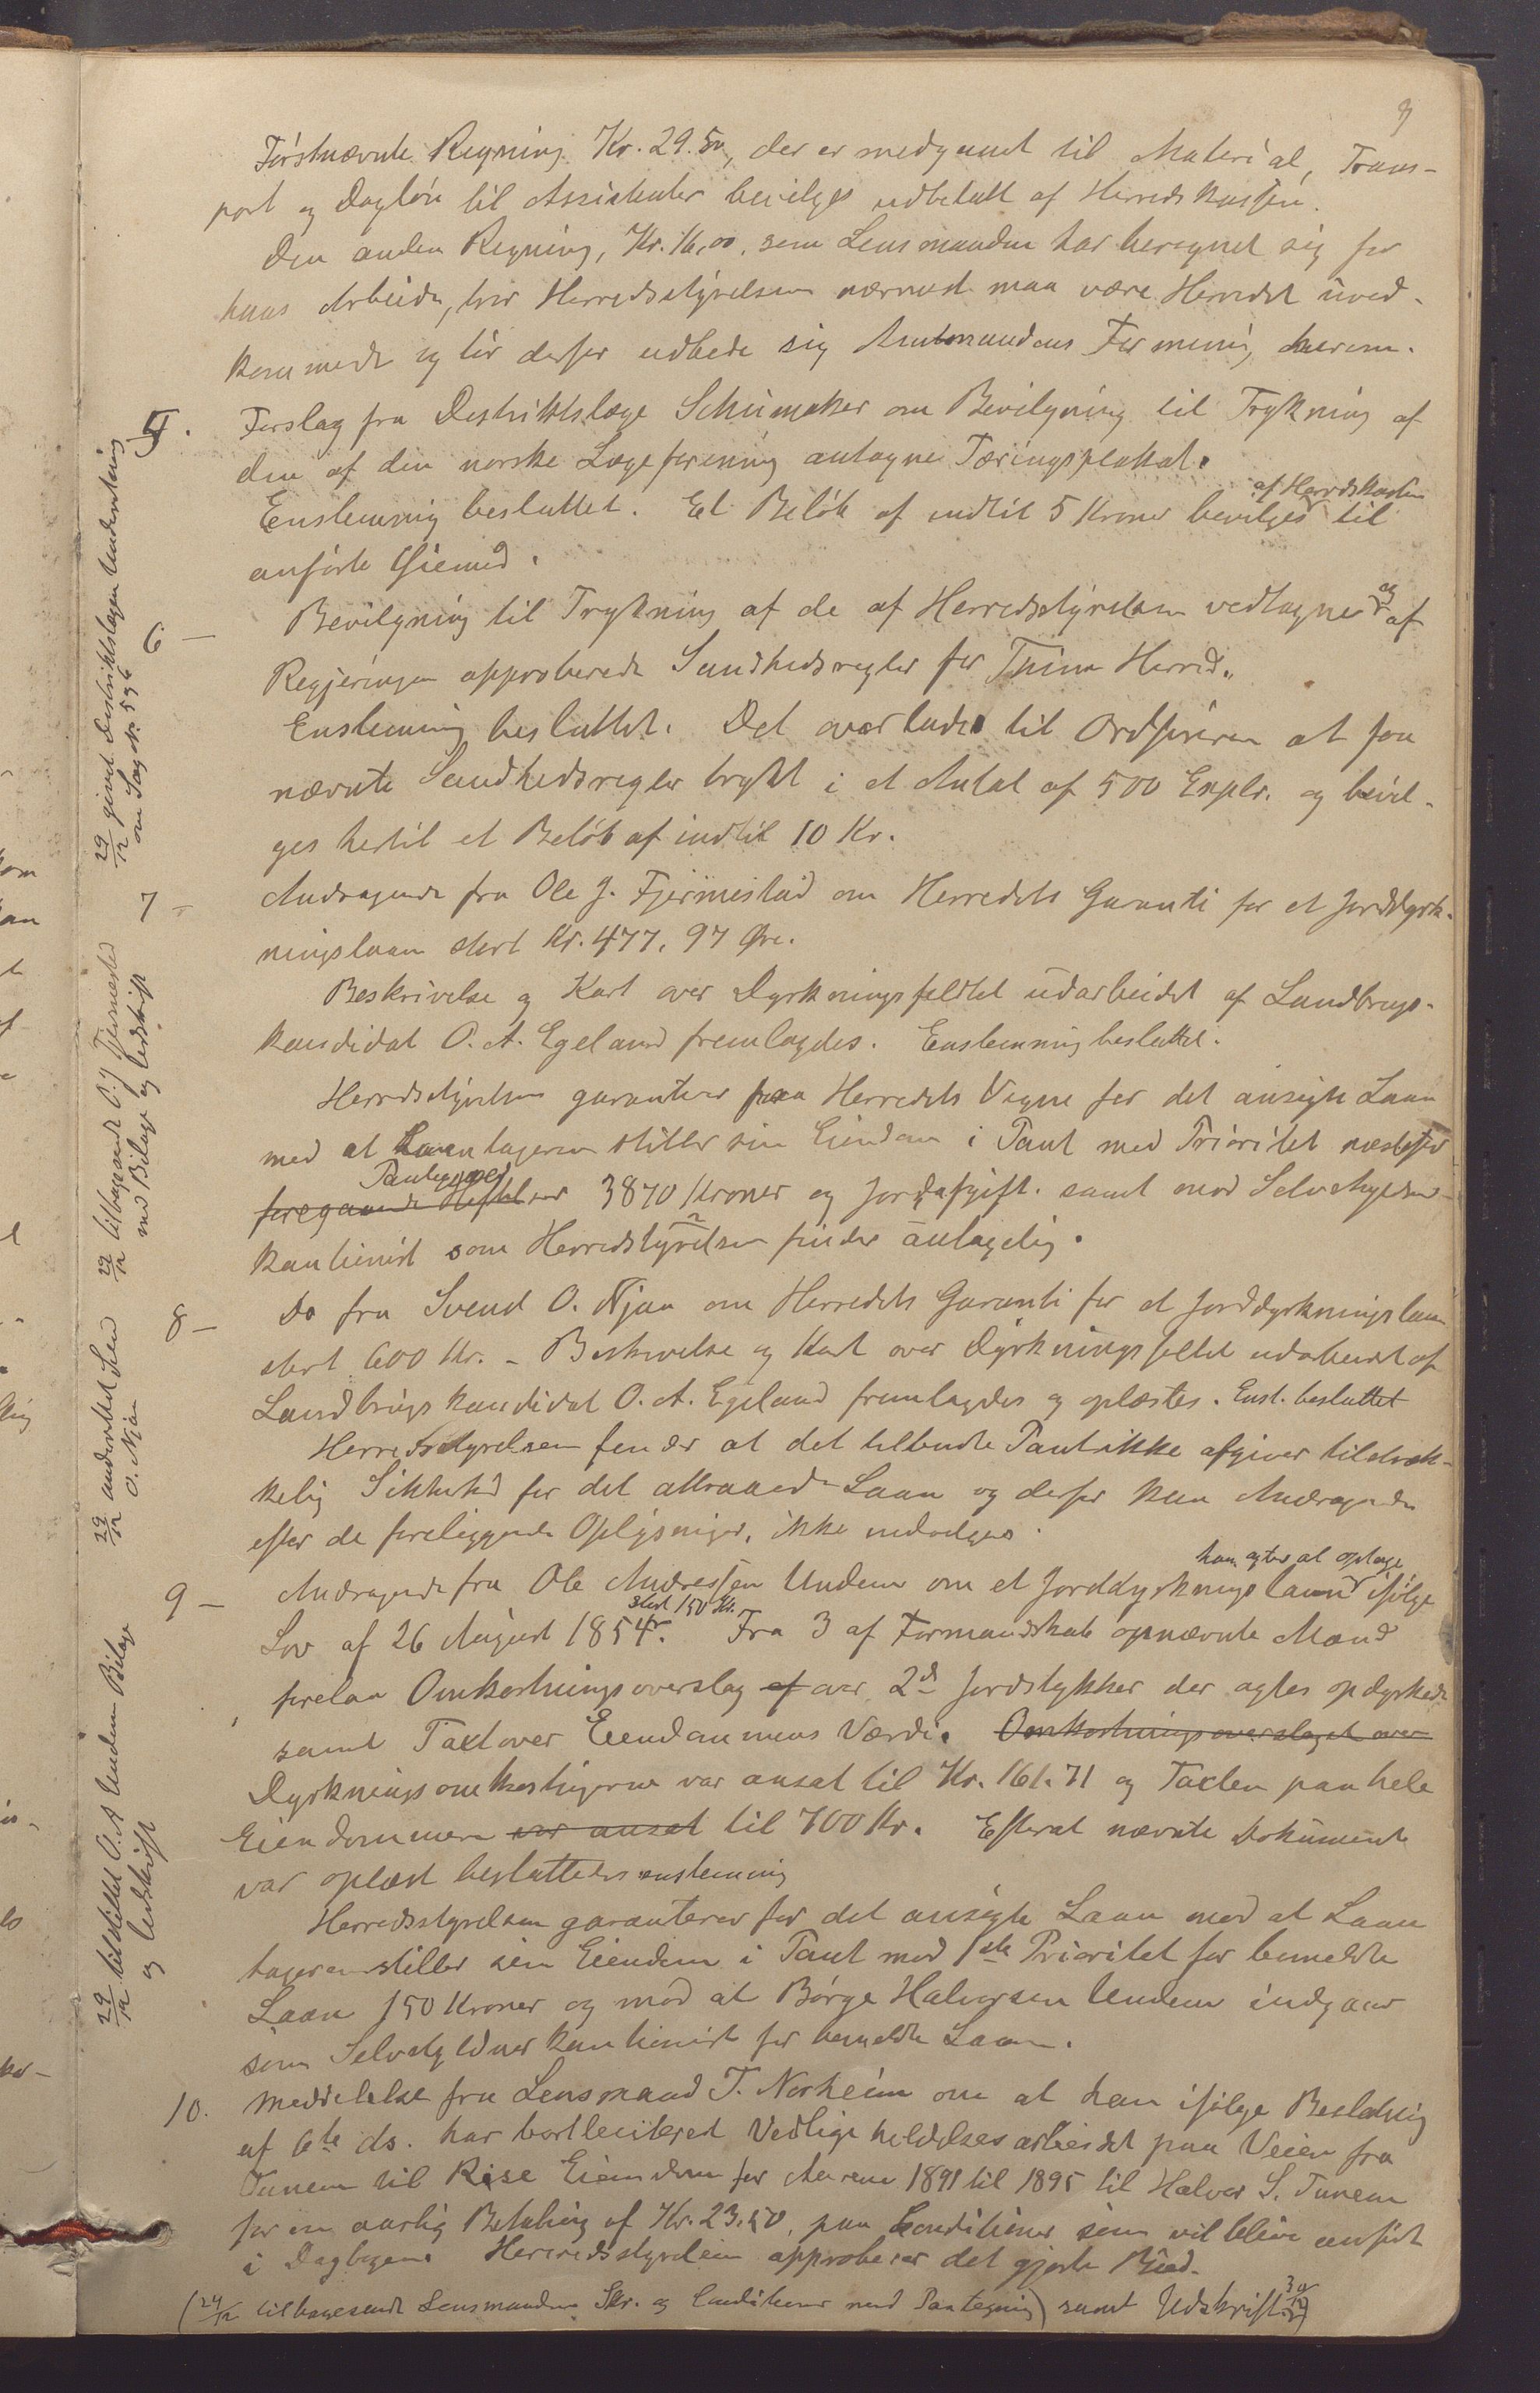 9
Førstnævnte Regning Kr. 29.50, der er medgaaet til Material, Trans-
port og Dagløn til Assistenter bevilges udbetalt af Herredskassen.
Den anden Regning, Kr. 16,00, som Lensmanden har beregnet sig for
hans Arbeide, tror Herredsstyrelsen nærmest maa være Herredet uved-
kommende og tør derfor udbede sig Amtmandens Formening herom.
5. Forslag fra Destriktslæge Schumaker om Bevilgning til Trykning af
den af den norske Lægeforening antagne Tæringsplakat.
Enstemmig besluttet. Et Beløb af indtil 5 Kroner bevilges af Herredskassen til
anførte Øiemed.
6 — Bevilgning til Trykning af de af Herredsstyrelsen vedtagne og af
Regjeringen approberede Sundhedsregler for Thime Herred.
Enstemmig besluttet. Det overlades til Ordføreren at faa
nævnte Sundhedsregler trykt i et Antal af 500 Explr. og bevil-
ges hertil et Beløb af indtil 10 Kr.
7 — Andragende fra Ole J. Fjermestad om Herredets Garanti for et Jorddyrk-
ningslaan stort Kr. 477,97 Øre.
Beskrivelse og Kart over Dyrkningsfeldtet udarbeidet af Landbrugs-
kandidat O. A. Egeland fremlagdes. Enstemmig besluttet.
Herredsstyrelsen garanterer paa Herredets Vegne for det ansøgte Laan
med at Laantageren stiller sin Eiendom i Pant med Prioritet næstefter
foregaaende Heftelser 3870 Kroner og Jordafgift. samt mod Selvskyldner-
kautionist som Herredstyrelsen finder antagelig.
8 — Do fra Svend O. Njaa om Herredets Garanti for et Jorddyrkningslaan
stort 600 Kr. - Beskrivelse og Kart over Dyrkningsfeltet udarbeidet af
Landbrugskandidat O. A. Egeland fremlagdes og oplæstes. Enst. besluttet
Herredsstyrelsen finder at det tilbudte Pant ikke afgiver tilstræk-
kelig Sikkerhed for det attraaede Laan og derfor kan Andragendet
efter de foreliggende Oplysninger, ikke indvilges.
9 — Andragende fra Ole Andressen Undem om et Jorddyrkningslaan han agter at optage ifølge
Lov af 26 August 1854. stort 150 Kr. Fra 3 af Formandskab opnævnte Mænd
forelaa Omkostningsoverslag af over 2de Jordstykker der agtes opdyrkede
samt Taxt over Eiendommens Værdi. Omkostningsoverslaget over
Dyrkningsomkostningerne var ansat til Kr. 161.71 og Taxten paa hele
Eiendommen var ansat til 700 Kr. Efterat nævnte Dokumente
var oplæst besluttedes enstemmig
Herredsstyrelsen garanterer for det ansøgte Laan mod at Laan
tageren stiller sin Eiendom i Pant med 1ste Prioritet for bemeldte
Laan 150 Kroner og mod at Børge Halvorsen Undem indgaar
som Selvskyldnerkautionist for bemeldte Laan.
10. Meddelelse fra Lensmand T. Norheim om at han ifølge Beslutning
af 6te ds. har bortliciteret Vedligeholdelsesarbeidet paa Veien fra
Tunem til Rise Eiendom for Aarene 1891 til 1895 til Halvor S. Tunem
for en aarlig Betaling af Kr. 23,50, paa Konditioner som vil blive anført
i Dagbogen. Herredsstyrelsen approberer det gjorte Bud.
(29/12 tilbagesendt Lensmanden Skr. og Conditioner med Paategning) samt Udskrift 30/12
29/12 givet Destriktslægen Underretning
om Sag N. 5 og 6
29/12 tilbagesendt O. J Fjermestad
med Bilage og Udskrift
29/12 underrettet Svend
O. Njaa
29/12 tilstillet O. A Undem Bilage
og Udskrift